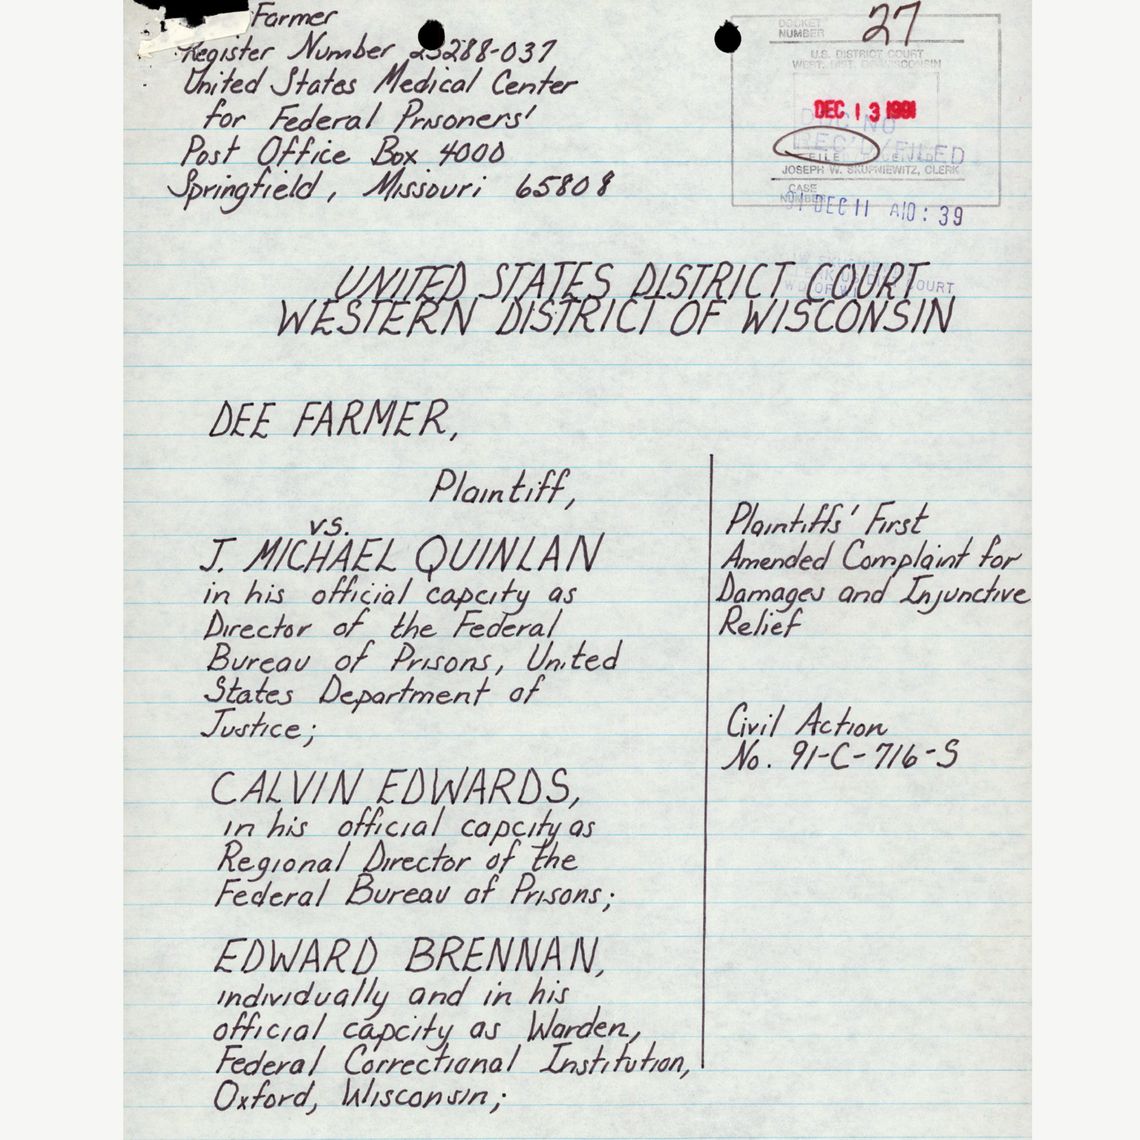 Farmer
Register Number 23288-037
United States Medical Center
for Federal Prisoners'
Post Office Box 4000
Springfield, Missouri 65808
DOCKET
NUMBER
27
U.S. DISTRICT COURT
WEST. DIST. OF WISCONSIN
DEC 13 1991
DOC NO
REC'D/FILED
FILED
JOSEPH W. SKUPNIEWITZ, CLERK
CASE
NUMBER
91 DEC 11 A10:39
COURT
UNITED STATES DISTRICT COURT
WESTERN DISTRICT OF WISCONSIN
DEE FARMER,
Plaintiff,
vs.
J. MICHAEL QUINLAN
in his official capcity as
Director of the Federal
Bureau of Prisons, United
States Department of
Justice;
CALVIN EDWARDS,
in his official capcity as
Regional Director of the
Federal Bureau of Prisons;
EDWARD BRENNAN,
individually and in his
official capcity as Warden,
Federal Correctional Institution,
Oxford, Wisconsin;
Plaintiffs' First
Amended Complaint for
Damages and Injunctive
Relief
Civil Action
No. 91-C-716-S